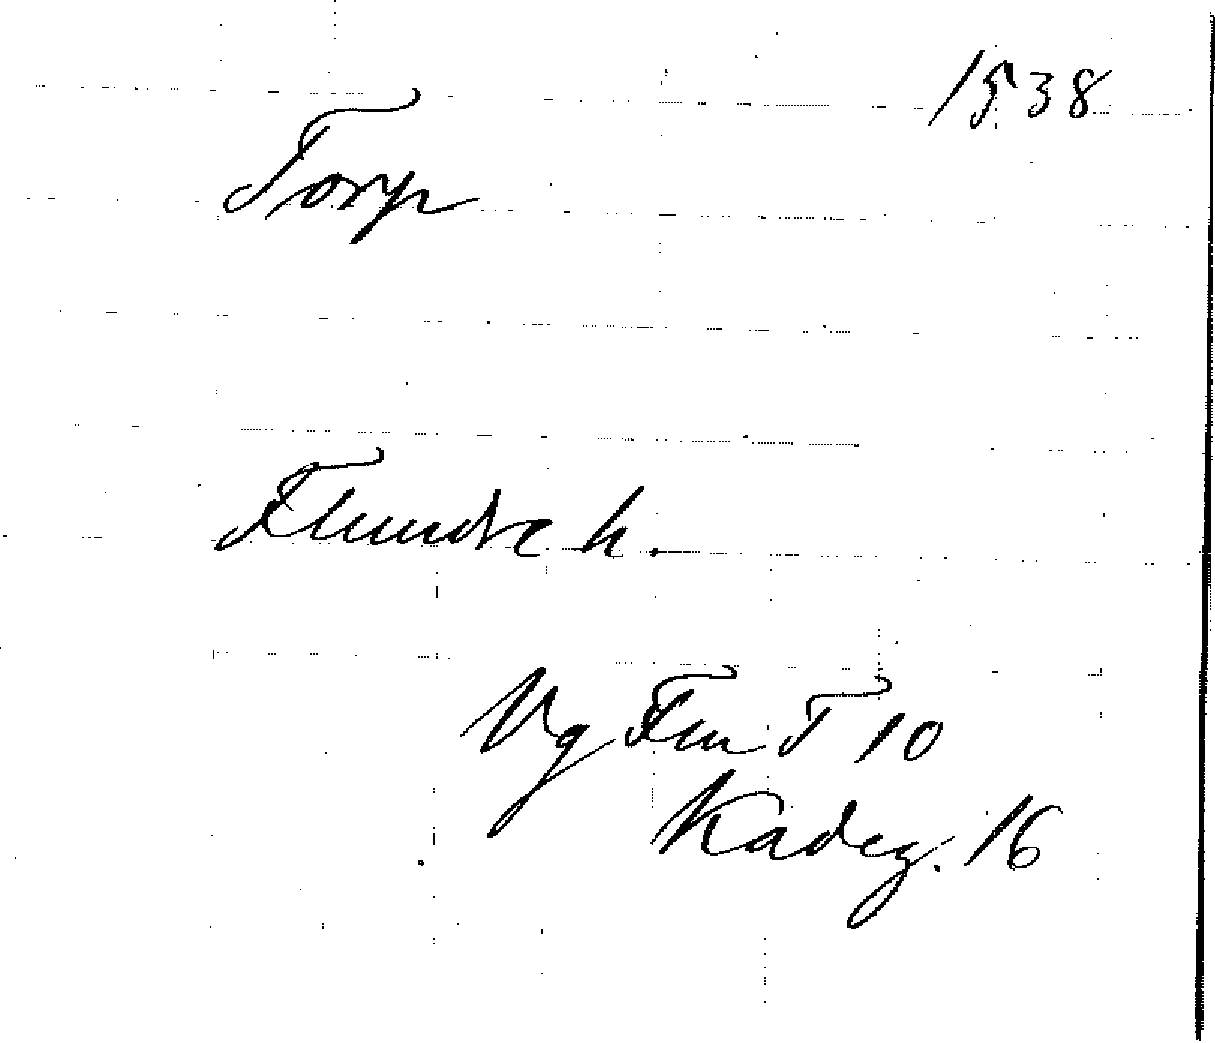 1538
Torp
Flundre h.
Vg Fru T 10
Kadeg. 16